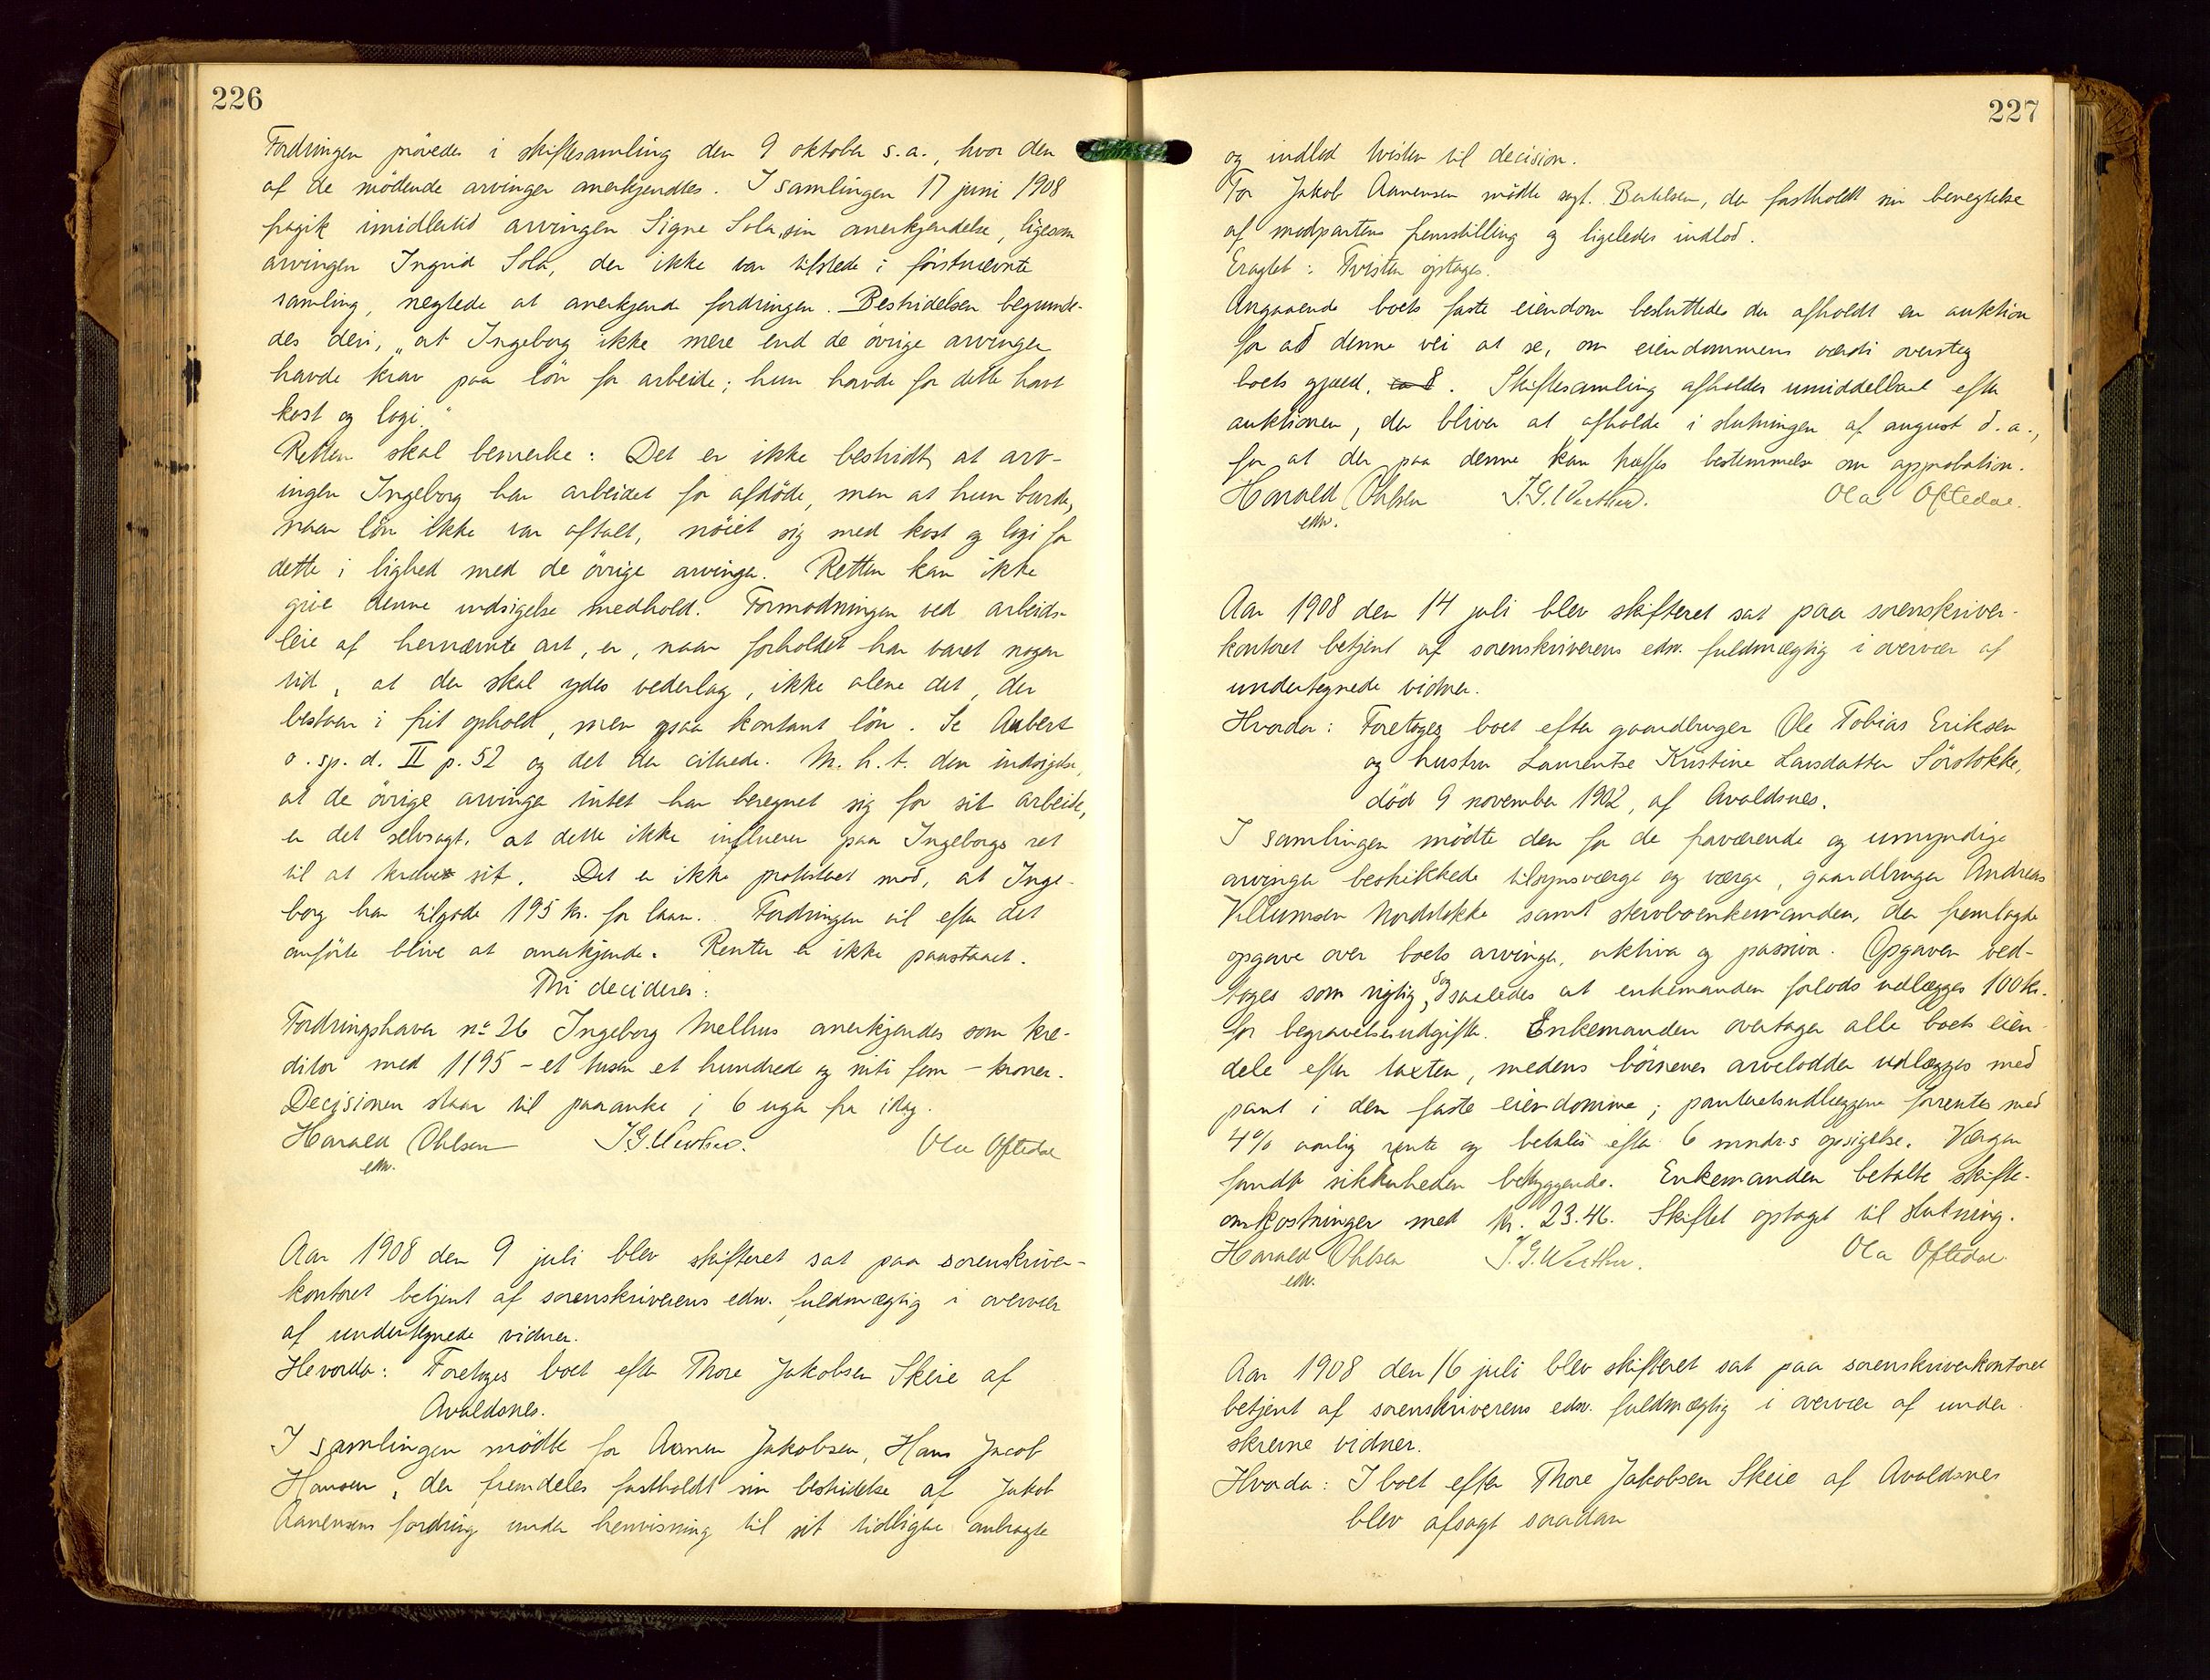 226
Fordringen prövedes i skiftesamling den 9 oktober s.a., hvor den
af de mödende arvinger anerkjendtes. I samlingen 17 juni 1908
fragik imidlertid arvingen Signe Sola sin anerkjendelse, ligesom
arvingen Ingrid Sola, der ikke var tilstede i förstnævnte
samling, negtede at anerkjende fordringen. Bestridelsen begrunde-
des deri, "at Ingeborg ikke mere end de övrige arvinger
havde krav paa lön for arbeide; hun havde for dette havt
kost og logi."
Retten skal bemerke: Det er ikke bestridt, at arv-
ingen Ingeborg har arbeidet for afdöde, men at hun burde,
naar lön ikke var aftalt, nöiet sig med kost og logi for
dette i lighed med de övrige arvinger. Retten kan ikke
give denne indsigelse medhold. Formodningen ved arbeids-
leie af hernævnte art, er, naar forholdet har varet nogen
tid, at der skal ydes vederlag, ikke alene det, der
bestaar i frit ophold, men ogsaa kontant lön. Se Aubert
o. sp. d. II p. 52 og det der citerede. M. h. t. den indsigelse,
at de övrige arvinger intet har beregnet sig for sit arbeide,
er det selvsagt, at dette ikke influerer paa Ingeborgs ret
til at kræve sit. Det er ikke protesteret mod, at Inge-
borg har tilgode 195 kr. for laan. Fordringen vil efter det
anförte blive at anerkjende. Renter er ikke paastaaet.
Thi decideres:
Fordringshaver no 26 Ingeborg Melhus anerkjendes som kre-
ditor med 1195 - et tusen et hundrede og niti fem - kroner.
Decisionen staar til paaanke i 6 uger fra idag.
Harald Ohlsen J. G. Wærther. Ola Oftedal
edv.
Aar 1908 den 9 juli blev skifteret sat paa sorenskriver-
kontoret betjent af sorenskriverens edsv. fuldmægtig i overvær
af undertegnede vidner.
Hvorda: Foretages boet efter Thore Jakobsen Skeie af
Avaldsnes.
I samlingen mödte for Aanen Jakobsen, Hans Jacob
Hansen, der fremdeles fastholdt sin bestridelse af Jakob
Aanensens fordring under henvisning til sit tidligere anbragte
227
og indlod tvisten til decision.
For Jakob Aanensen mödte sagf. Bertelsen, der fastholdt sin benegtelse
af modpartens fremstilling og ligeledes indlod.
Eragtet: Tvisten optages.
Angaaende boets faste eiendom besluttedes der afholdt en auktion
for ad denne vei at se, om eiendommens værdi oversteg
boets gjæld. Skiftesamling afholdes umiddelbart efter
auktionen, der bliver at afholde i slutningen af august d. a.,
for at der paa denne kan træffes bestemmelse om approbation.
Harald Ohlsen J. G. Wærther. Ola Oftedal.
edv.
Aar 1908 den 14 juli blev skifteret sat paa sorenskriver-
kontoret betjent af sorenskriverens edsv. fuldmægtig i overvær af
undertegnede vidner.
Hvorda: Foretages boet efter gaardbruger Ole Tobias Eriksen
og hustru Laurentse Kristine Larsdatter Sörstokke,
död 9 november 1902, af Avaldsnes.
I samlingen mödte den for de fraværende og umyndige
arvinger beskikkede tilsynsværge og værge, gaardbruger Andreas
Villumsen Nordstokke samt stervboenkemanden, der fremlagde
opgave over boets arvinger, aktiva og passiva. Opgaven ved-
toges som rigtig, dog saaledes at enkemanden forlods udlægges 100 kr.
for begravelsesudgifter. Enkemanden overtager alle boets eien-
dele efter taxten, medens börnenes arvelodder udlægges med
pant i den faste eiendomme; panteretsudlæggene forrentes med
4% aarlig rente og betales efter 6 mndr.s opsigelse. Værgen
fandt sikkerheden betryggende. Enkemanden betalte skifte-
omkostninger med kr. 23.46. Skiftet optaget til slutning.
Harald Ohlsen J. G. Wærther. Ola Oftedal
edv.
Aar 1908 den 16 juli blev skifteret sat paa sorenskriverkontoret
betjent af sorenskriverens edsv. fuldmægtig i overvær af under
skrevne vidner.
Hvorda: I boet efter Thore Jakobsen Skeie af Avaldsnes
blev afsagt saadan